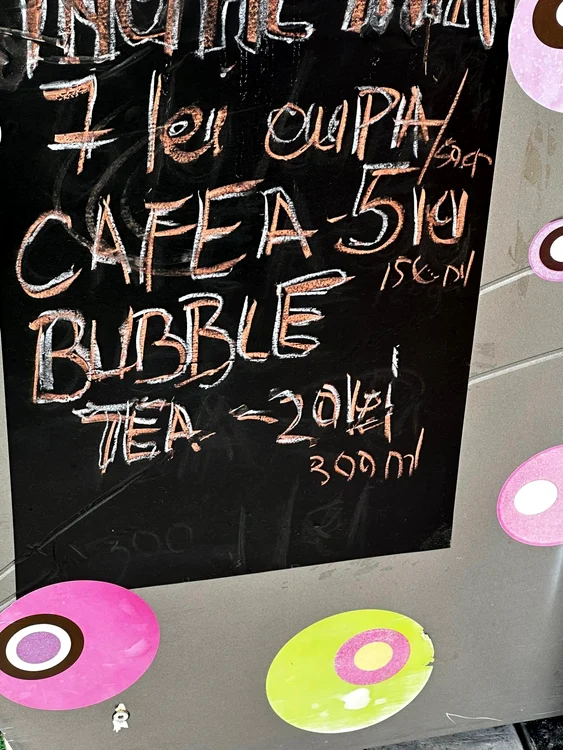 7 lei CUPA/50gr
CAFEA-5lei
150 ml
BUBBLE
TEA -20lei
300ml